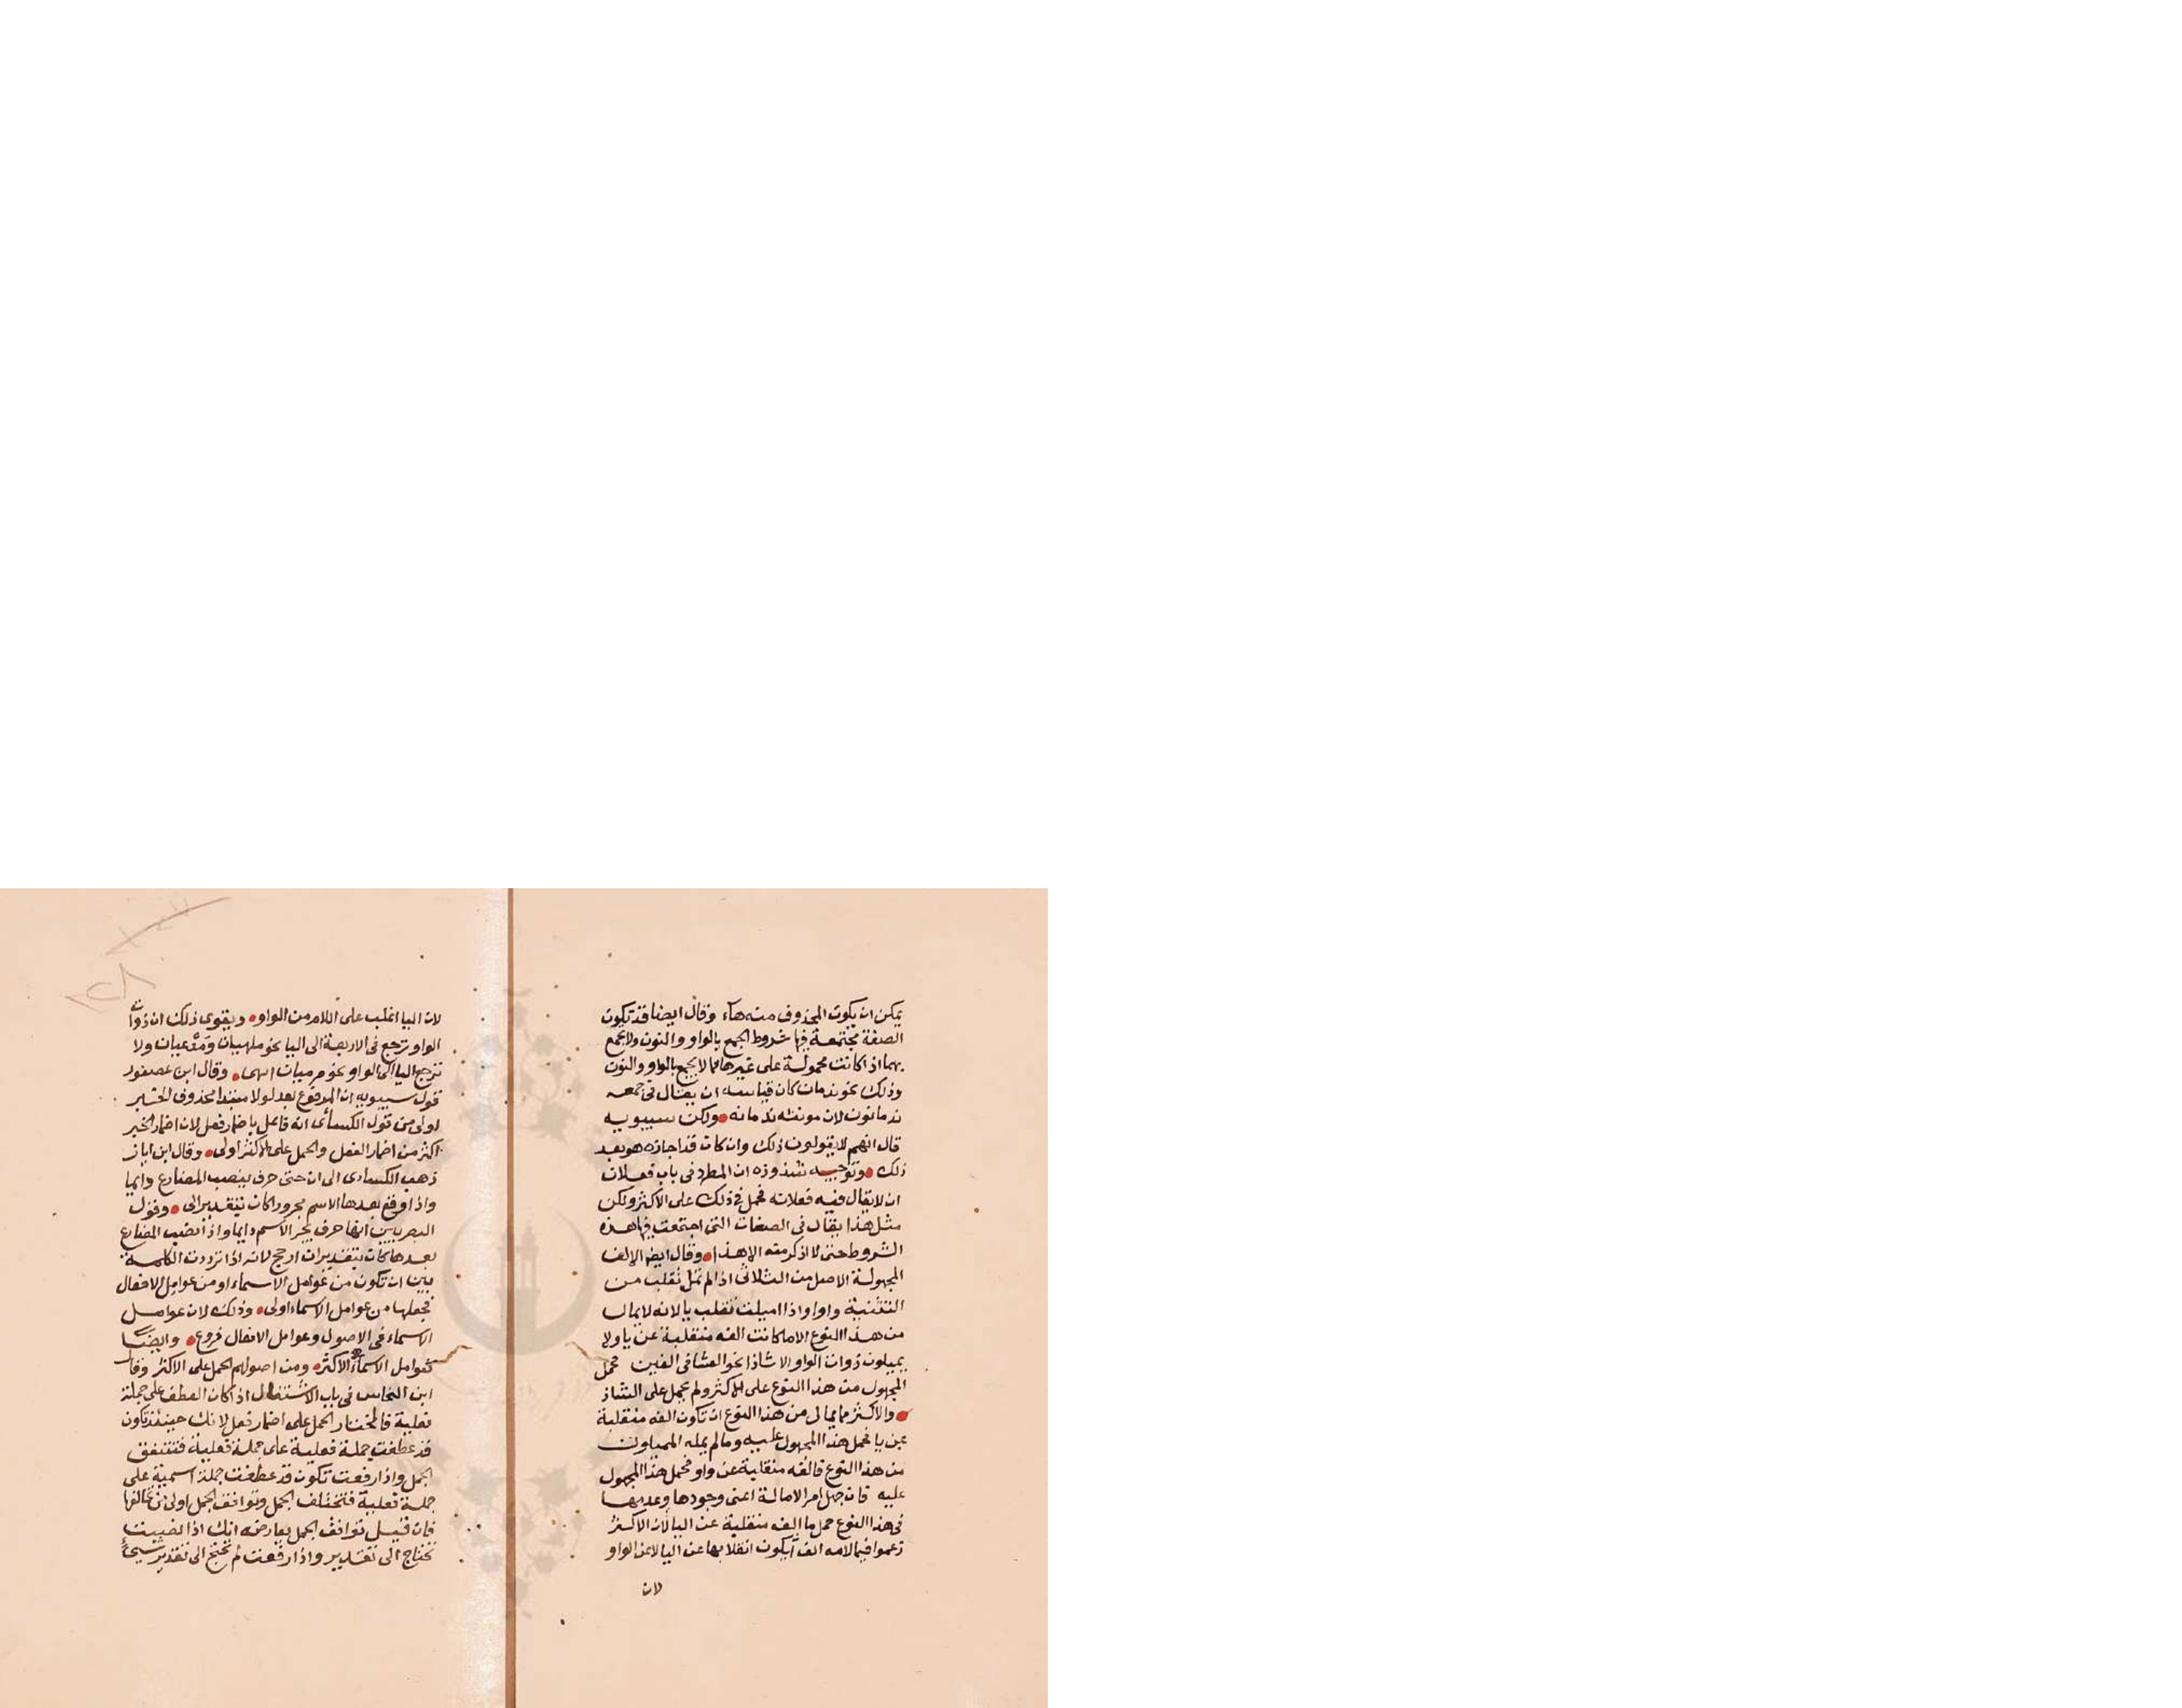 يمكن ان يكون المحذوف منه هاء وقال ايضا قد تكون
الصفة مجتمعة فيها شروط الجمع بالواو والنون ولا يجمع
بهما اذا كانت محمولة على غيرها مما لا يجمع بالواو والنون
وذلك نحو ندمان كان قياسه ان يقال في جمعه
ندمانون لان مونثه ندمانه ولكن سيبويه
قال انهم لا يقولون ذلك وان كان قد اجازه هو بعد
ذلك وتوجيه شذوذه ان المطرد في باب فعلان
ان لا يقال فيه فعلانه فحمل في ذلك على الاكثر ولكن
مثل هذا يقال في الصفات التي اجتمعت فيها هذه
الشروط حتى لا اذكر منه الا هذا وقال ايض الالف
المجهولة الاصل من الثلاثي اذا لم تمل تقلب من
التثنية واوا واذا اميلت تقلب يا لانه لا يمال
من هذا النوع الا ما كانت الفه منقلبة عن يا ولا
يميلون ذوات الواو الا شاذا نحو العشا في الفين فحمل
المجهول من هذا النوع على الاكثر ولم يحمل على الشاذ
والاكثر مما يمال من هذا النوع ان تكون الفه منقلبة
عن يا فحمل هذا المجهول عليه وما لم يمله المميلون
من هذا النوع فالفه منقلبة عن واو فحمل هذا المجهول
عليه فان جهل امر الامالة اعني وجودها وعدمها
في هذا النوع حمل ما الفه منقلبة عن اليا لان الاكثر
زعموا فيما لامه الف ان يكون انقلابها عن اليا لا عن الواو
لان
لان اليا اغلب على اللام من الواو ويقوي ذلك ان ذوات
الواو ترجع في الاربعة الى اليا نحو ملهيان ومدعيان ولا
ترجع اليا الى الواو نحو مرميان انتهى وقال ابن عصفور
قول سيبويه ان المرفوع بعد لولا مبتدا محذوف الخبر
اولى من قول الكسائي انه فاعل باضمار فعل لان اضمار الخبر
اكثر من اضمار الفعل والحمل على الاكثر اولى وقال ابن اياز
ذهب الكسائى الى ان حتى حرف ينصب المضارع دايما
واذا وقع بعدها الاسم مجرورا كان بتقدير الى وقول
البصريين انها حرف يجر الاسم دايما واذا نصب المضارع
بعدها كان بتقدير ان ارجح لانه اذا ترددت الكلمة
بين ان تكون من عوامل الاسماء او من عوامل الافعال
فجعلها من عوامل الاسماء اولى وذلك لان عوامل
الاسماء هي الاصول وعوامل الافعال فروع وايضا
فعوامل الاسماء الاكثر ومن اصولهم الحمل على الاكثر وقال
ابن النحاس في باب الاشتغال اذا كان العطف على جملة
فعلية فالمختار الحمل على اضمار فعل لانك حينئذ تكون
قد عطفت جملة فعلية على جملة فعلية فتتفق
الجمل واذا رفعت تكون قد عطفت جملة اسمية على
جملة فعلية فتختلف الجمل وتوافق الجمل اولى من تخالفها
فان قيل توافق الجمل يعارضه انك اذا نصبت
تحتاج الى تقدير واذا رفعت لم تحتج الى تقدير شيئ